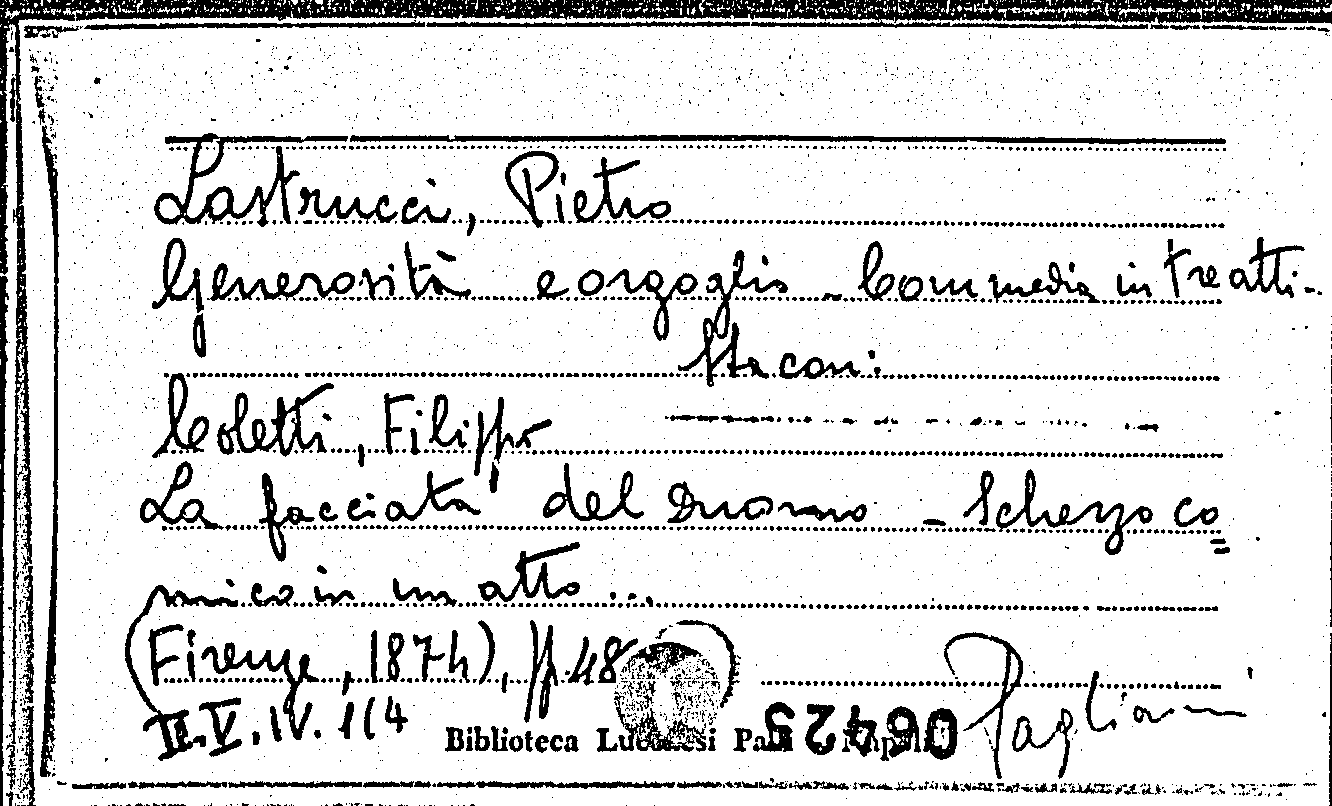 Lastrucci, Pietro
Generosità e orgoglio - Commedia in tre atti -
Sta con:
Coletti, Filippo
La facciata del Duomo - Scherzo co=
mico in un atto...
(Firenze, 1874), pp. 48
II.V.IV. 1(4
Biblioteca Lucchesi Palli Napoli
06425
Pagliaini